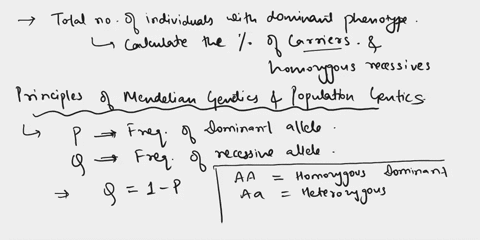 → Total no. of individuals with dominant phenotype.
↳ Calculate the % of Carriers &
homozygous recessives
Principles of Mendelian Genetics & Population Gentics.
↳ P ⇒ Freq. of Dominant allele.
Q ⇒ Freq. of recessive allele.
⇒ Q = 1-P
AA = Homozygous Dominant
Aa = Heterozygous